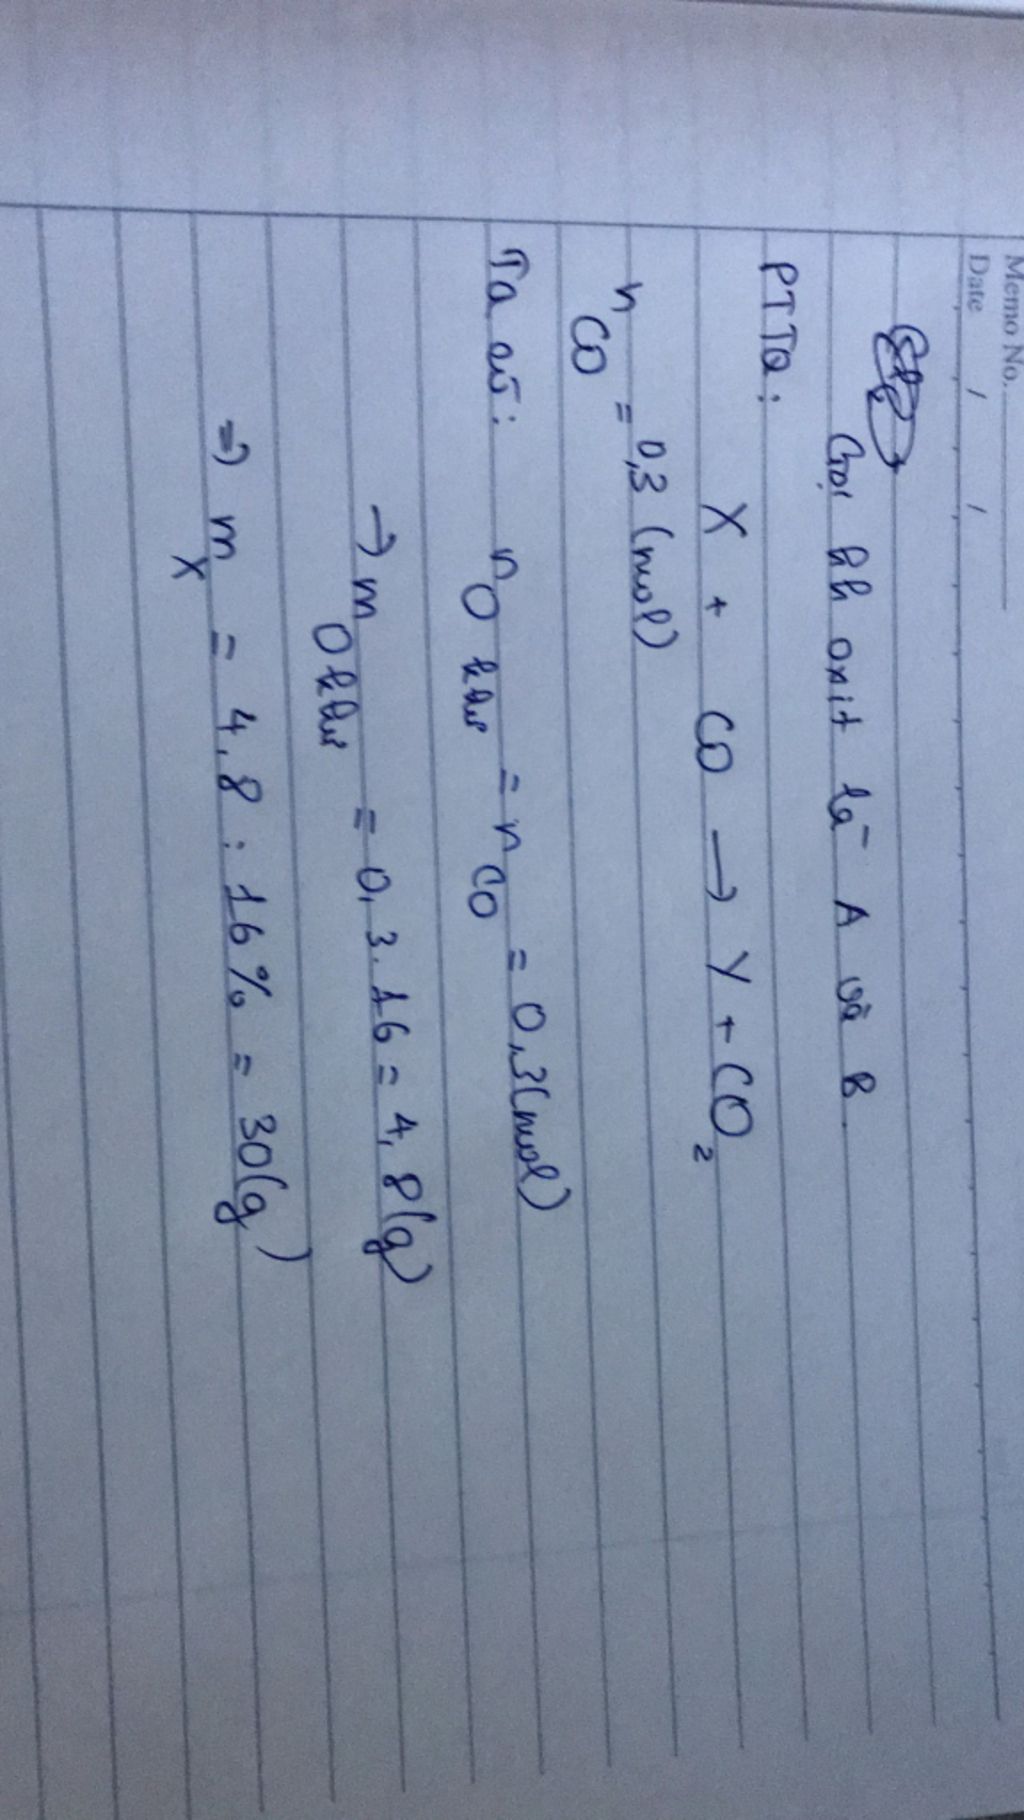 Memo No.
Date / /
Gọi hh oxit là A và B.
PTTQ:
X + CO → Y + CO₂
n CO = 0,3 (mol)
Ta có: n O khử = n CO = 0,3 (mol)
→ m O khử = 0,3.16 = 4,8 (g)
⇒ m X = 4,8 : 16% = 30 (g)